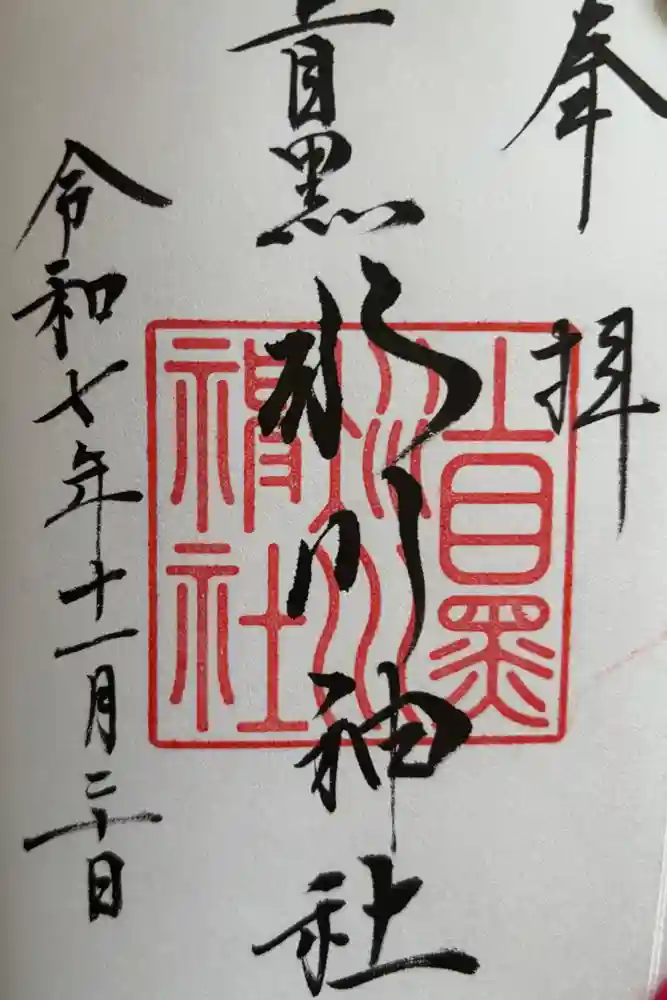 奉拝
上目黒氷川神社
令和七年十一月二十日
上目黒
氷川
神社